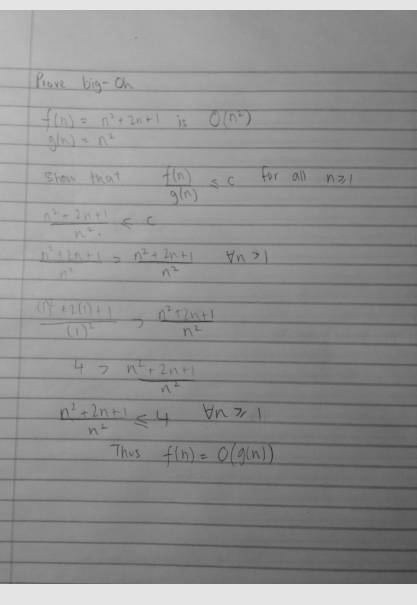 Prove big-Oh
f(n) = n² + 2n + 1 is O(n²)
g(n) = n²
Show that f(n)/g(n) ≤ c for all n ≥ 1
(n² + 2n + 1)/n² ≤ c
(n² + 2n + 1)/n² > (n² + 2n + 1)/n² ∀n > 1
((1)² + 2(1) + 1)/(1)² > (n² + 2n + 1)/n²
4 > (n² + 2n + 1)/n²
(n² + 2n + 1)/n² ≤ 4 ∀n ≥ 1
Thus f(n) = O(g(n))